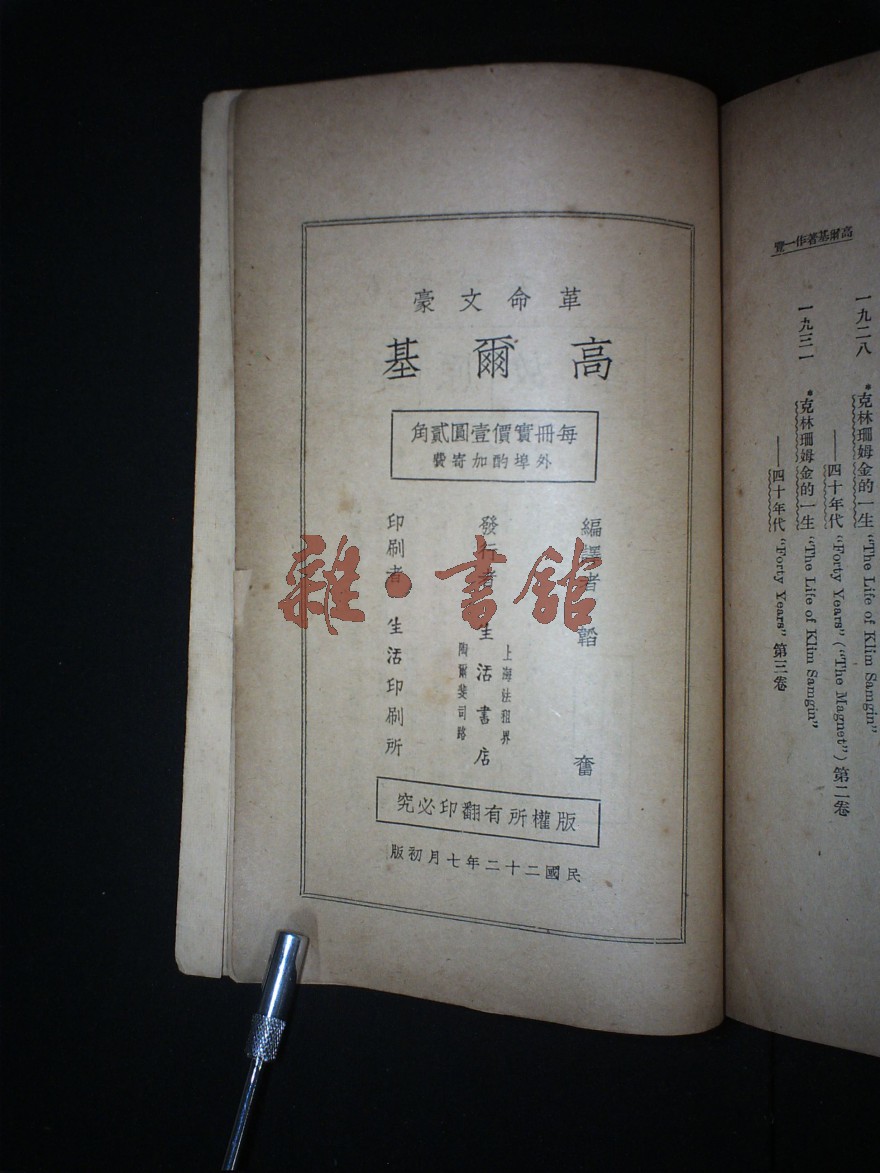 革命文豪
高爾基
每冊實價壹圓貳角
外埠酌加寄費
編譯者 韜奮
發行者 生活書店
上海法租界
陶爾斐司路
印刷者 生活印刷所
版權所有翻印必究
民國二十二年七月初版
雜·書館
高爾基著作一覽
一九二八 •克林珊姆金的一生 “The Life of Klim Samgin”
——四十年代 “Forty Years” (“The Magnet”) 第二卷
一九三一 •克林珊姆金的一生 “The Life of Klim Samgin”
——四十年代 “Forty Years” 第三卷